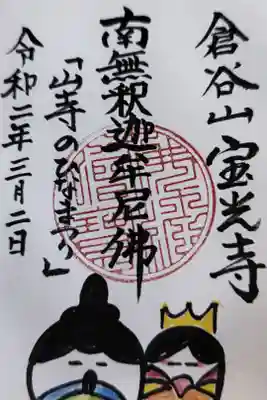 倉谷山宝光寺
南無釈迦牟尼佛
「山寺のひなまつり」
令和二年三月二日